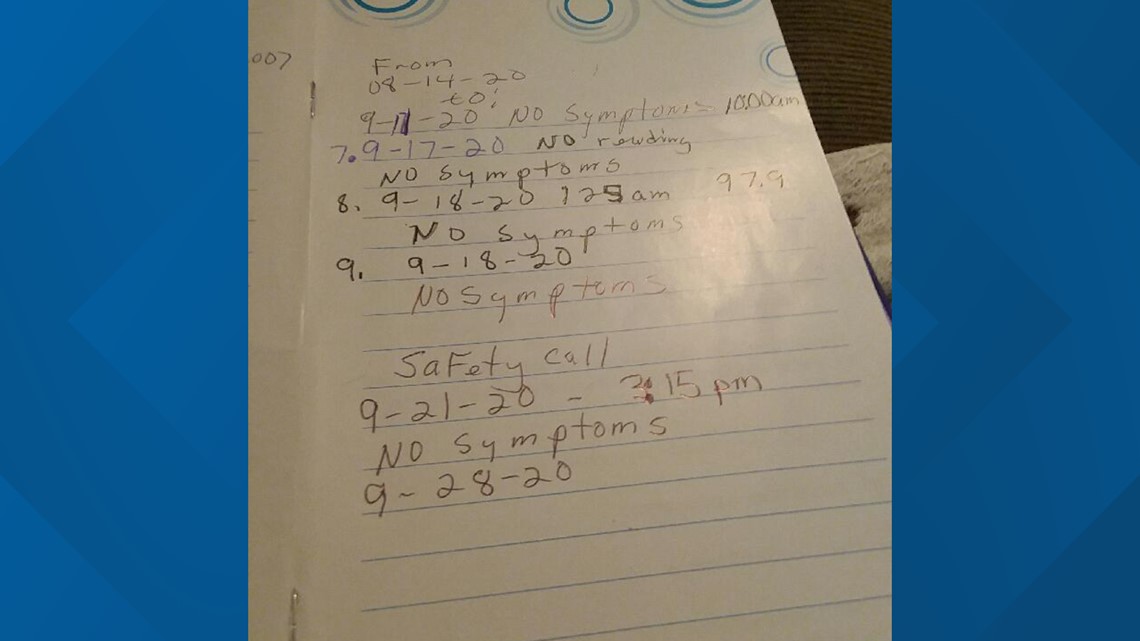 007
From
08-14-20
to:
9-11-20 NO Symptoms 10:00am
7. 9-17-20 NO rewding
NO Symptoms
8. 9-18-20 125am 97.9
NO Symptoms
9. 9-18-20
NO Symptoms
Safety call
9-21-20 - 3:15 pm
NO Symptoms
9-28-20